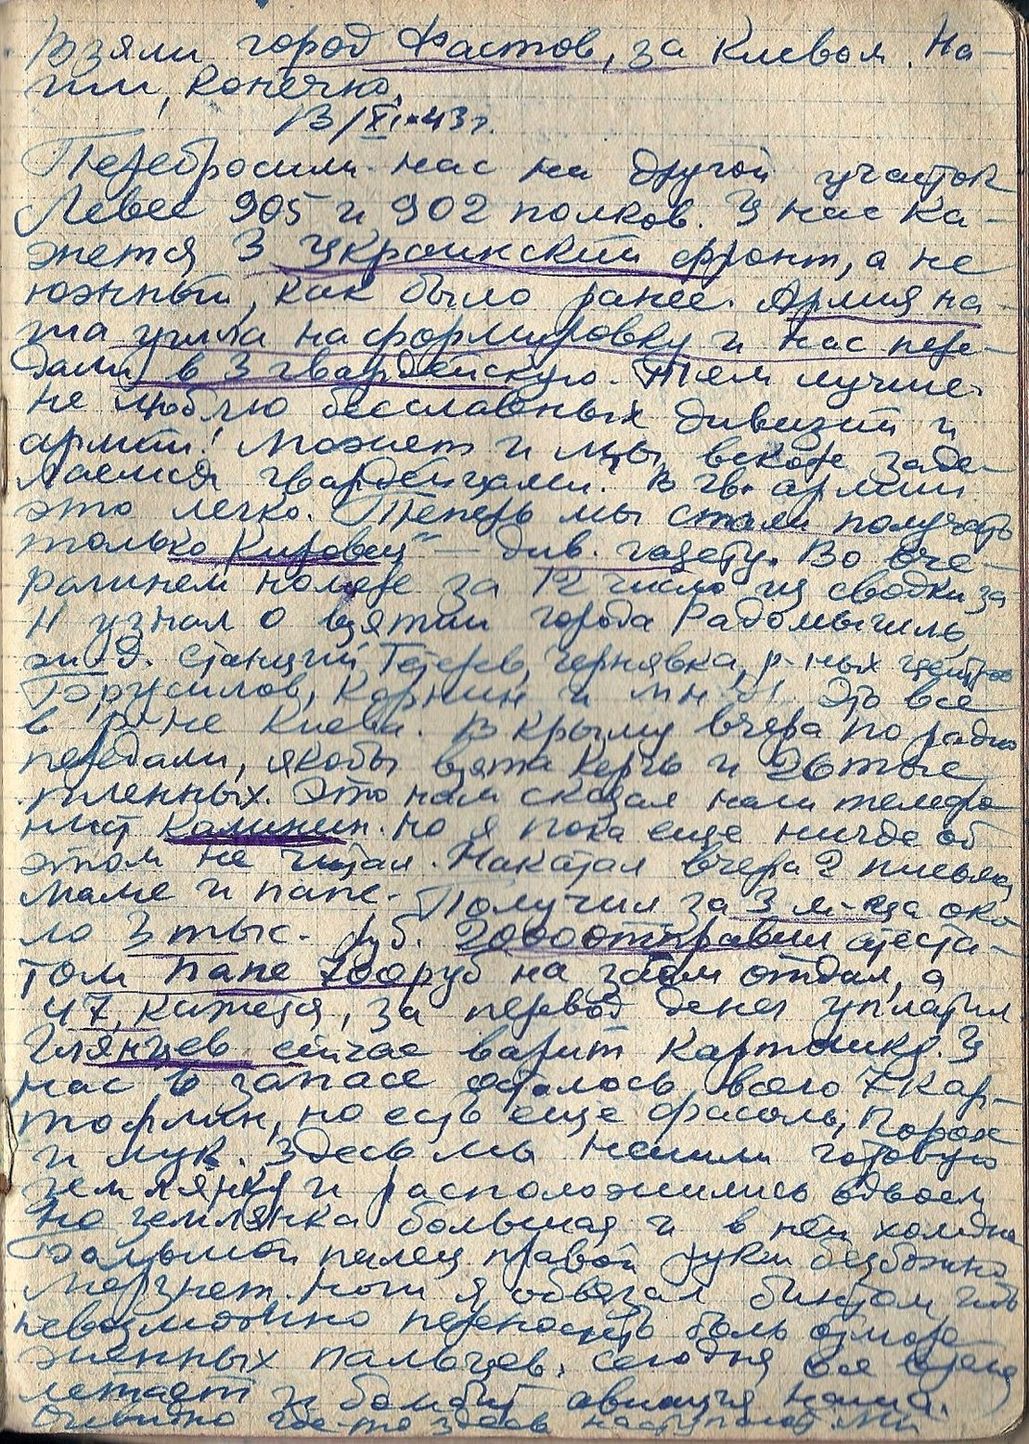 Взяли город Фастов, за Киевом. На-
ши, конечно.
13/XI-43г.
Перебросили нас на другой участок
Левее 905 и 902 полков. У нас ка-
жется 3 Украинский фронт, а не
южный, как было ранее. Армия на-
ша ушла на формировку и нас пере-
дали в 3 гвардейскую. Тем лучше.
не люблю бесславных дивизий и
армий! Может и мы вскоре заде-
лаемся гвардейцами. В гв. армии
это легко. Теперь мы стали получать
только Кировец" — див. газету. Во вче-
рашнем номере за 12 число из сводки за
11 узнал о взятии города Радомышль,
ж.д. станций Тетерев, Чернявка, р-ных центров
Брусилов, Корнин и мн. д. Это все
в р-не Киева. В Крыму вчера по радио
передали, якобы взята Керчь и 26 тыс
пленных. Это нам сказал наш телефо-
нист Калинин. Но я пока еще нигде об
этом не читал. Накатал вчера 2 письма
маме и папе. Получил за 3 м-ца око-
ло 3 тыс. руб. 2000 отправил аттеста-
том папе 700 руб на заем отдал, а
47, кажется, за перевод денег уплатил
Глянцев сейчас варит картошку. У
нас в запасе осталось всего 7 кар-
тофлин, но есть еще фасоль, горох
и лук. Здесь мы нашли готовую
землянку и расположились вдвоем
Но землянка большая и в ней холодно
Большой палец правой руки безбожно
мерзнет. Ноги я обвязал бинтом, ибо
невозможно переносить боль отморо-
женных пальцев. Сегодня все время
летает и бомбит авиация наша.
Очевидно где-то здесь наступают. Мы